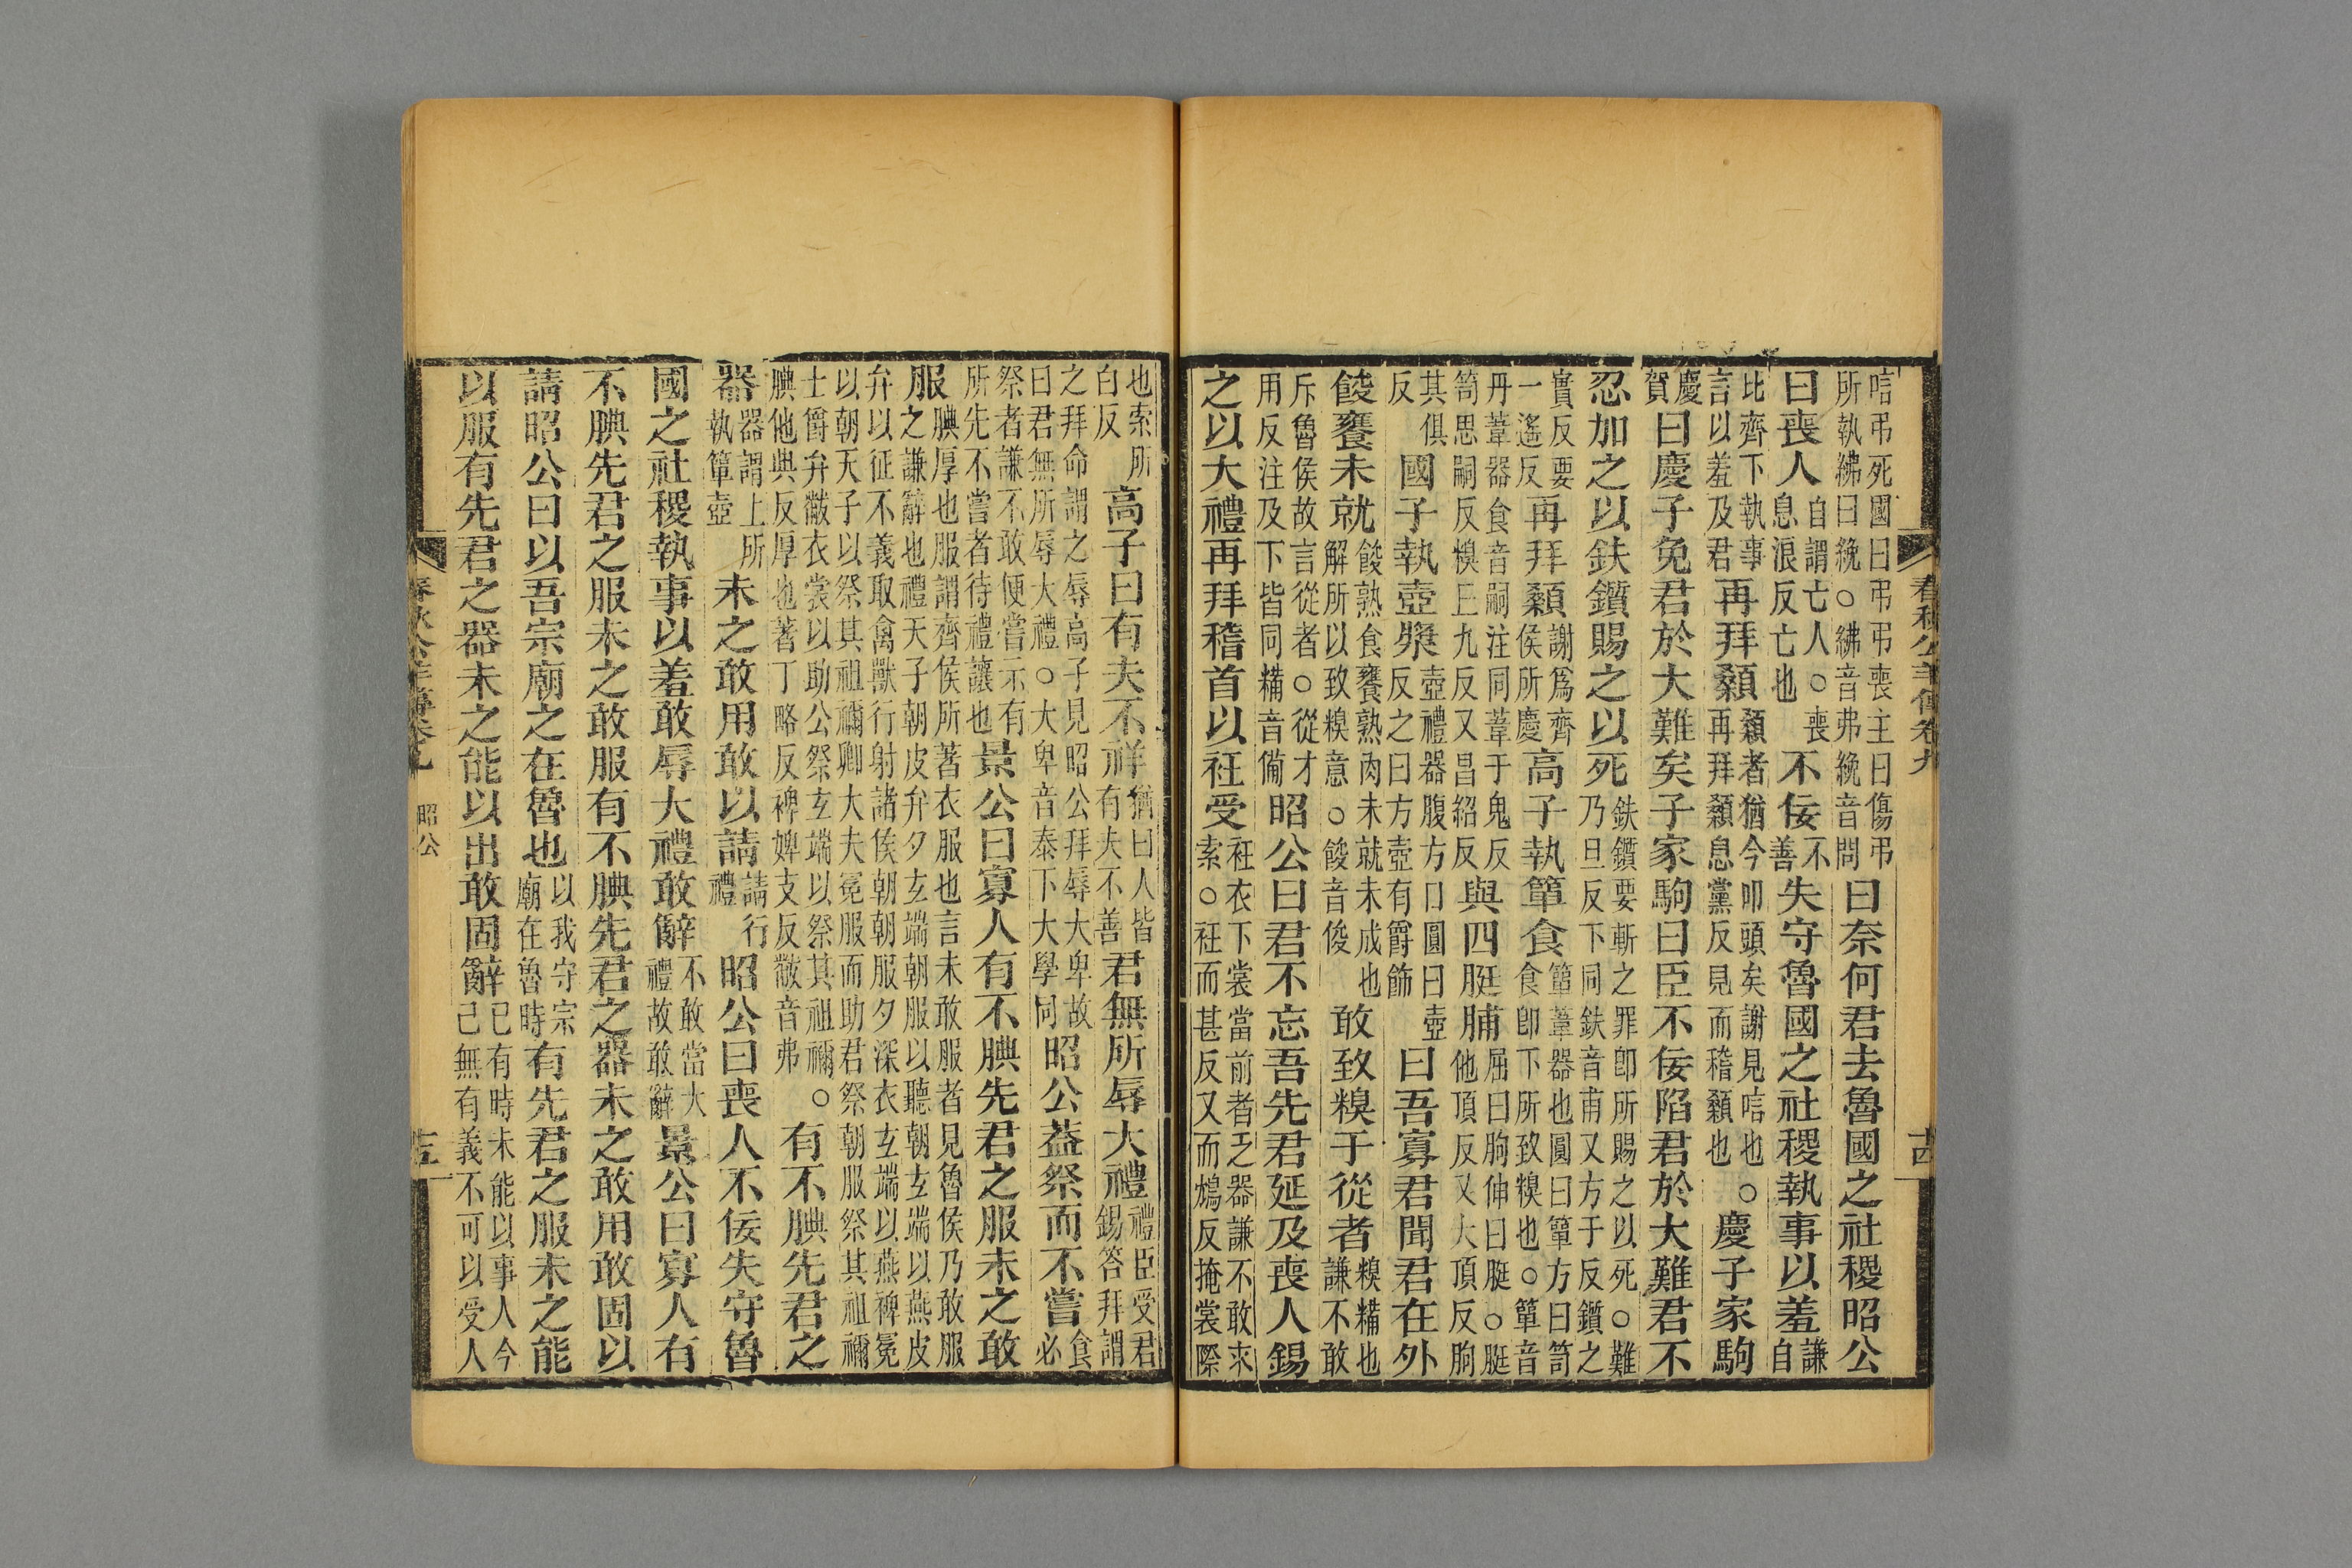 春秋公羊傳卷九 十四
唁弔死國曰弔弔喪主曰傷弔所執紼曰絻○紼音弗絻音問曰奈何君去魯國之社稷昭公
曰喪人自謂亡人○喪息浪反亡也不佞不善失守魯國之社稷執事以羞謙自
比齊下執事言以羞及君再拜顙顙者猶今叩頭矣謝見唁也○再拜顙息黨反見而稽顙也慶子家駒
慶賀曰慶子免君於大難矣子家駒曰臣不佞陷君於大難君不
忍加之以鈇鑕賜之以死鈇鑕要斬之罪卽所賜之以死○難乃旦反下同鈇音甫又方于反鑕之
實反要一遙反再拜顙謝爲齊侯所慶高子執簞食簞葦器也圓曰簞方曰笥食卽下所致糗也○簞音
丹葦器食音嗣注同葦于鬼反笥思嗣反糗丘九反又昌紹反與四脡脯屈曰朐伸曰脡○脡他頂反又大頂反朐
其俱反國子執壺漿壺禮器腹方口圓曰壺反之曰方壺有爵飾曰吾寡君聞君在外
餕饔未就餕熟食饔熟肉未就未成也解所以致糗意○餕音俊敢致糗于從者糗糒也謙不敢
斥魯侯故言從者○從才用反注及下皆同糒音備昭公曰君不忘吾先君延及喪人錫
之以大禮再拜稽首以衽受衽衣下裳當前者乏器謙不敢求索○衽而甚反又而鴆反掩裳際
也索所白反高子曰有夫不祥猶曰人皆有夫不善君無所辱大禮禮臣受君錫答拜謂
之拜命謂之辱高子見昭公拜辱大卑故曰君無所辱大禮○大卑音泰下大學同昭公蓋祭而不嘗食必
祭者謙不敢便嘗示有所先不嘗者待禮讓也景公曰寡人有不腆先君之服未之敢
服腆厚也服謂齊侯所著衣服也言未敢服者見魯侯乃敢服之謙辭也禮天子朝皮弁夕玄端朝服以聽朝玄端以燕皮
弁以征不義取禽獸行射諸侯朝朝服夕深衣玄端以燕裨冕以朝天子以祭其祖禰卿大夫冕服而助君祭朝服祭其祖禰
士爵弁黻衣裳以助公祭玄端以祭其祖禰○腆他典反厚也著丁略反裨婢支反黻音弗有不腆先君之
器器謂上所執簞壺未之敢用敢以請請行禮昭公曰喪人不佞失守魯
國之社稷執事以羞敢辱大禮敢辭不敢當大禮故敢辭景公曰寡人有
不腆先君之服未之敢服有不腆先君之器未之敢用敢固以
請昭公曰以吾宗廟之在魯也以我守宗廟在魯時有先君之服未之能
以服有先君之器未之能以出敢固辭已有時未能以事人今己無有義不可以受人
春秋公羊傳卷九 昭公 十五